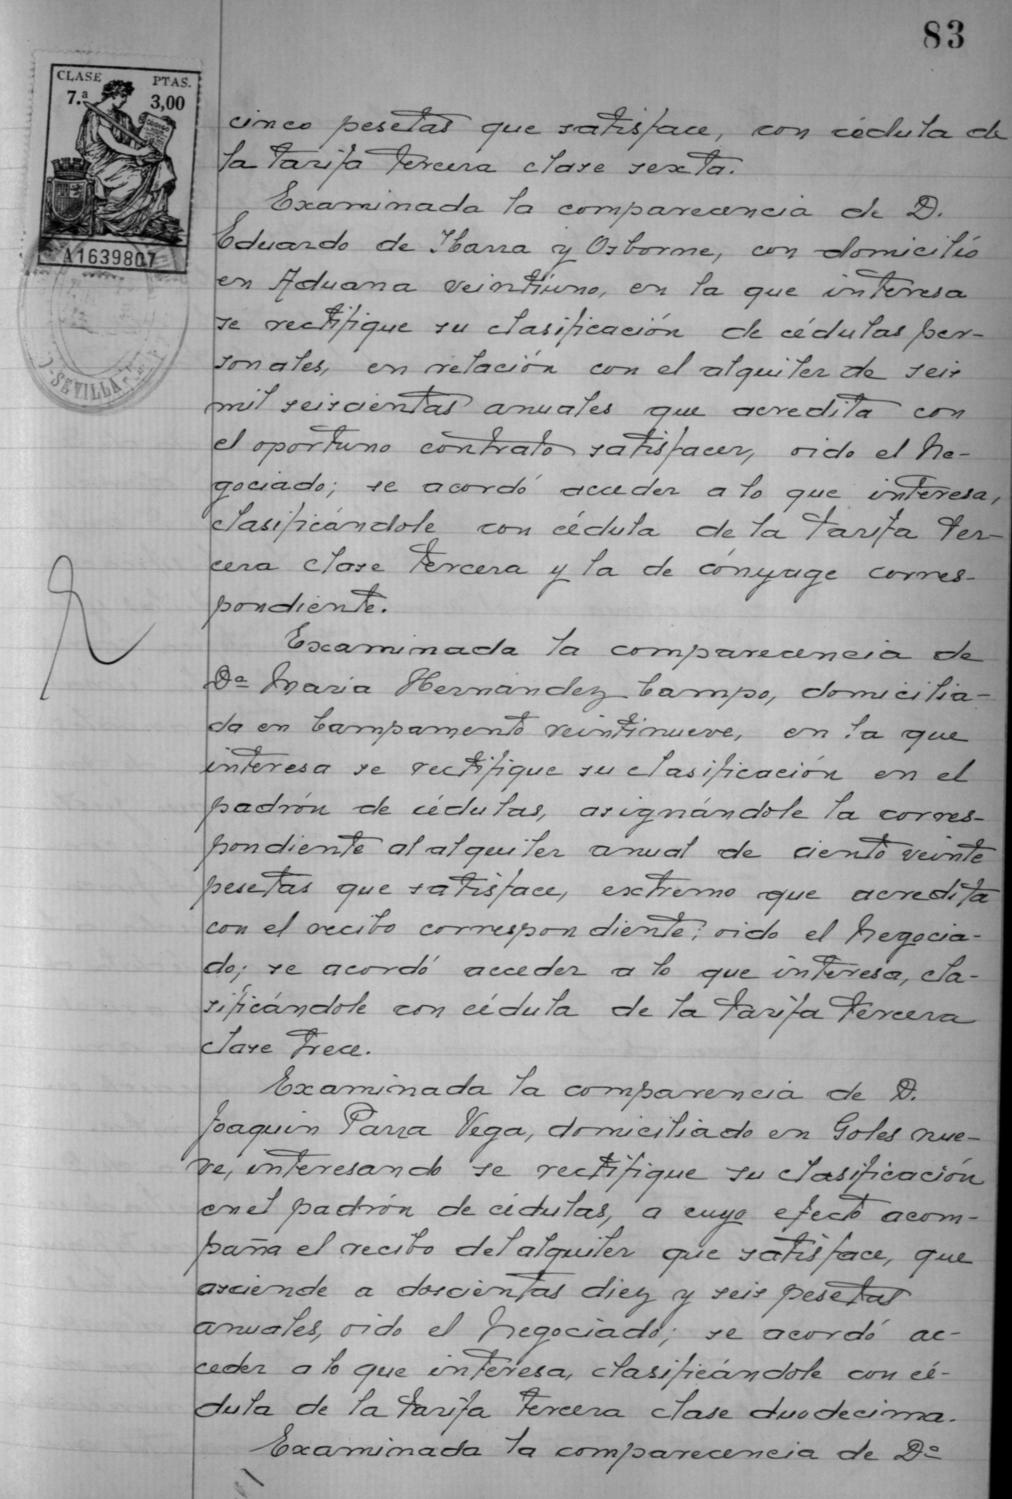 83
CLASE PTAS.
7.ª 3,00
A1639807
SEVILLA
cinco pesetas que satisface, con cédula de
la tarifa tercera clase sexta.
Examinada la comparecencia de D.
Eduardo de Ibarra y Osborne, con domicilio
en Aduana veintiuno, en la que interesa
se rectifique su clasificación de cédulas per-
sonales, en relación con el alquiler de seis
mil seiscientas anuales que acredita con
el oportuno contrato satisfacer, oido el Ne-
gociado; se acordó acceder a lo que interesa,
clasificándole con cédula de la tarifa ter-
cera clase tercera y la de cónyuge corres-
pondiente.
Examinada la comparecencia de
Dª Maria Hernández Campo, domicilia-
da en Campamento veintinueve, en la que
interesa se rectifique su clasificación en el
padrón de cédulas, asignándole la corres-
pondiente al alquiler anual de ciento veinte
pesetas que satisface, extremo que acredita
con el recibo correspondiente; oido el Negocia-
do; se acordó acceder a lo que interesa, cla-
sificándole con cédula de la tarifa tercera
clase trece.
Examinada la comparencia de D.
Joaquin Parra Vega, domiciliado en Goles nue-
ve, interesando se rectifique su clasificación
en el padrón de cédulas, a cuyo efecto acom-
paña el recibo del alquiler que satisface, que
asciende a doscientas diez y seis pesetas
anuales, oido el Negociado; se acordó ac-
ceder a lo que interesa, clasificándole con cé-
dula de la tarifa tercera clase duodecima.
Examinada la comparecencia de Dª